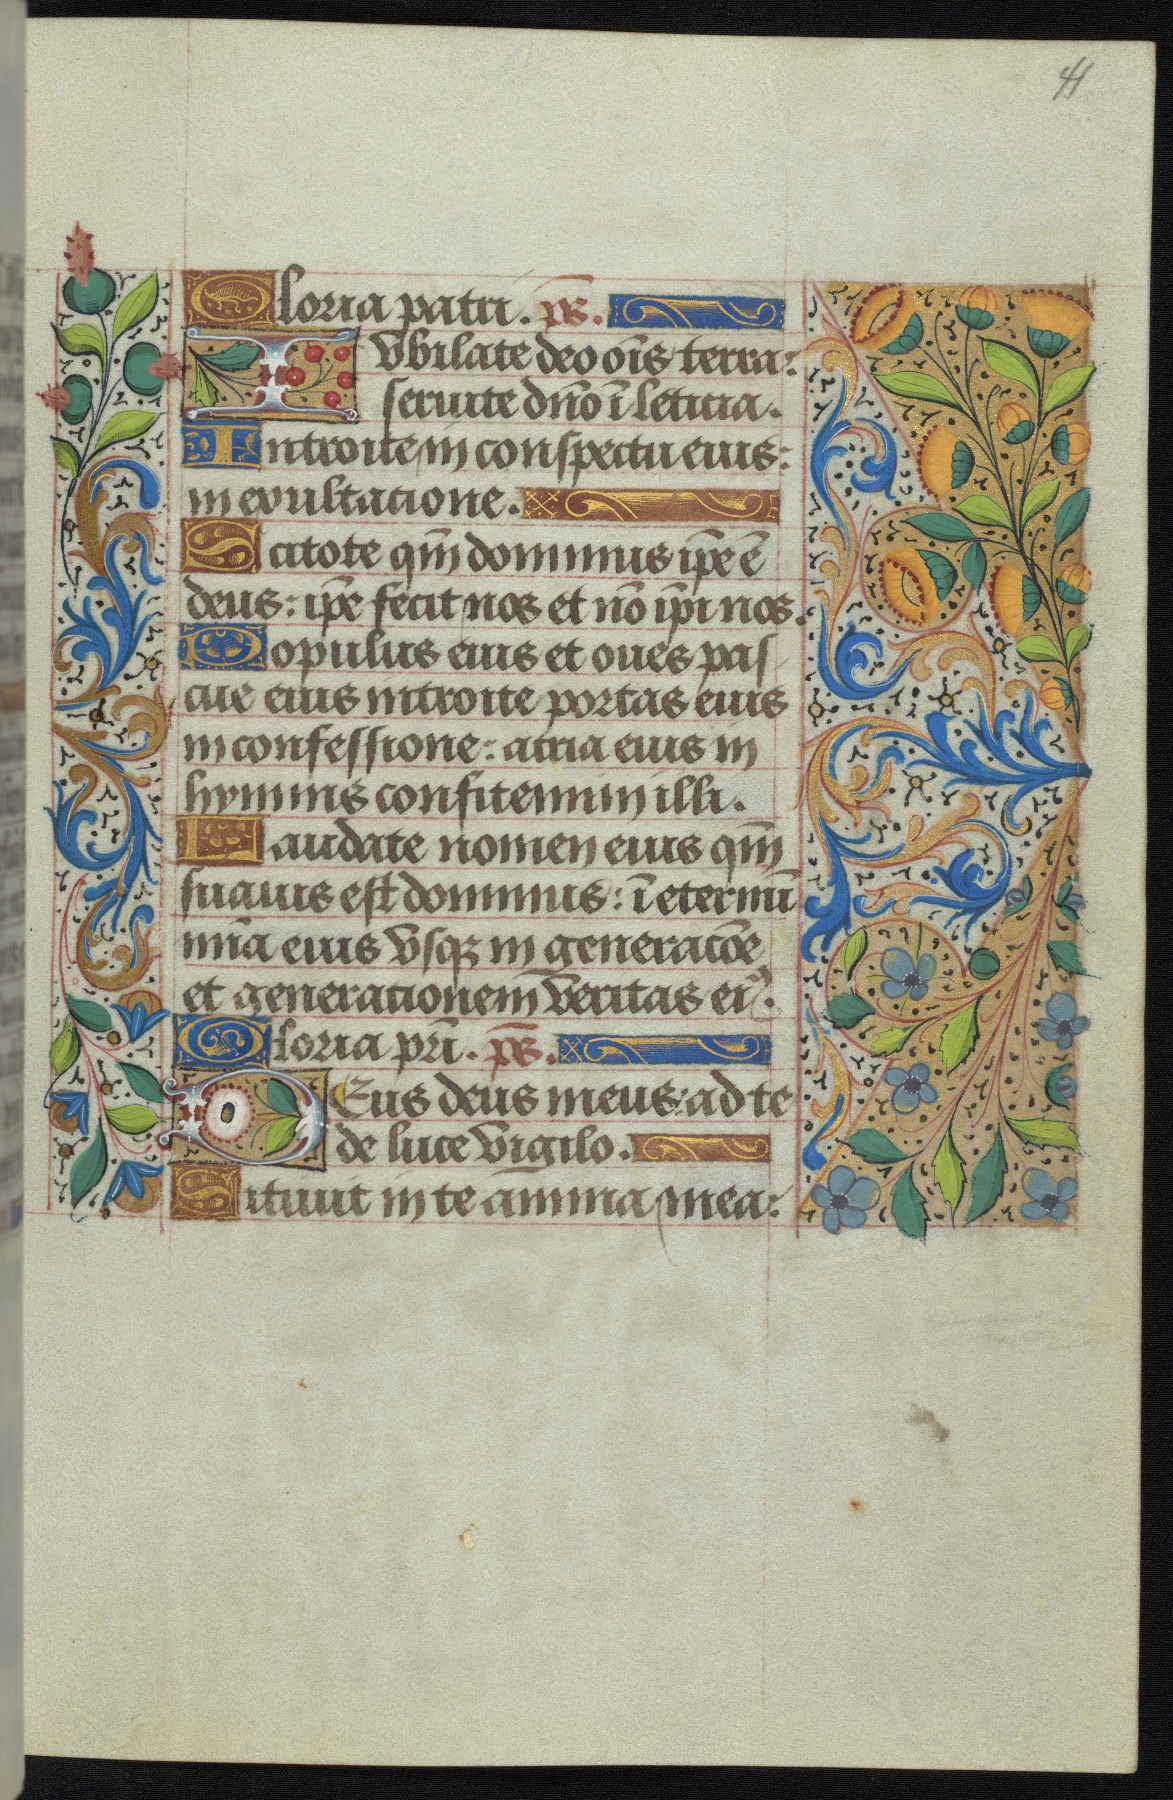 41
Gloria patri. p̅s̅.
IVbilate deo oı̅s terra:
seruite dn̅o ı̅ leticia.
Introite in conspectu eius:
in exultatione.
Scitote qm̅ dominus ip̅e e̅
deus: ip̅e fecit nos et no̅ ip̅i nos.
Populus eius et oues pas
cue eius introite portas eius
in confessione: atria eius in
hymnis confitemini illi.
Laudate nomen eius qm̅
suauis est dominus: ı̅ eternu̅
mı̅a eius vsqꝫ in generac̅o̅e
et generationem veritas eiꝰ.
Gloria pr̅i. p̅s̅.
DEus deus meus: ad te
de luce vigilo.
Sitiuit in te anima mea: